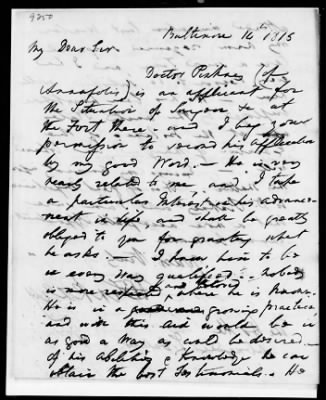 9250
Baltimore 16th 1815
My Dear Sir
Doctor Pinkney (of
Annapolis) is an applicant for
the Situation of Surgeon &c at
the Fort there - and I beg your
permission to second his application
by my good Word. - He is very
nearly related to me, and I take
a particular Interest in his advance-
ment in life, and shall be greatly
obliged to you for granting what
he asks. - I know him to be
in every way qualified - nobody
is more respected and beloved where he is known.
He is in a growing practice,
and with this aid would be in
as good a way as could be desired. -
of his abilities & Knowledge he can
obtain the best Testimonials. - He